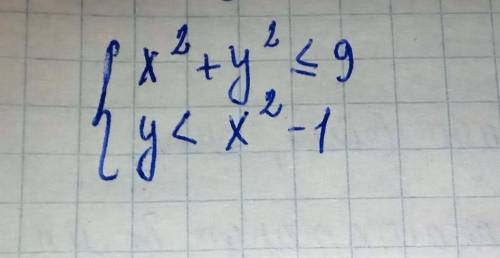 x² + y² ≤ 9
y < x² - 1